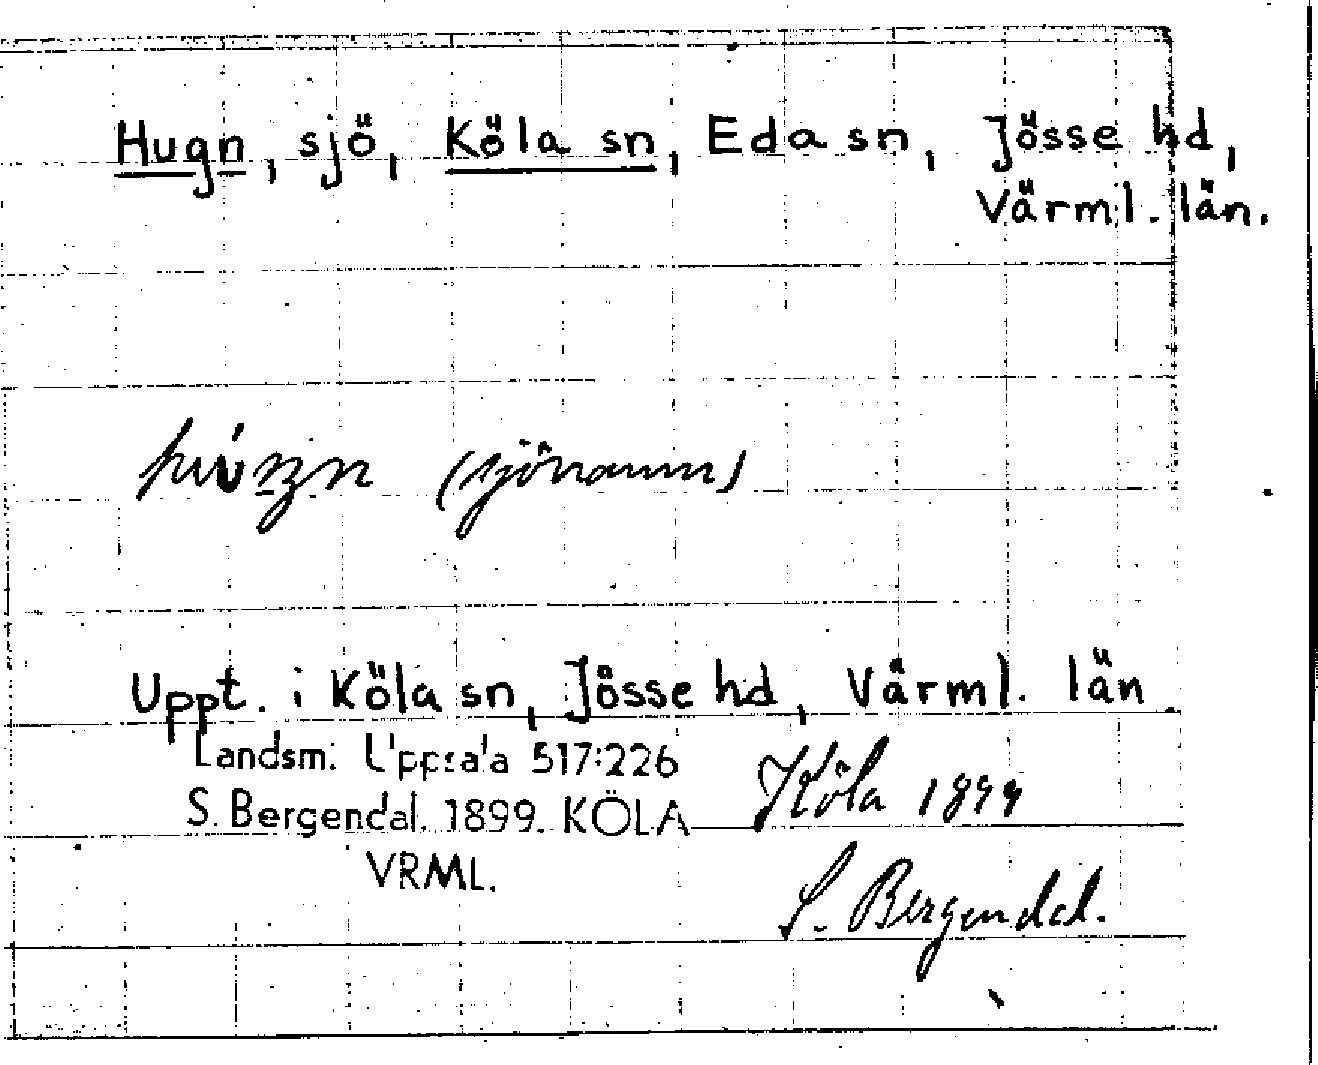 Hugn, sjö, Köla sn, Eda sn, Jösse hd,
Värml. län.
(sjönamn)
Uppt. i Köla sn, Jösse hd, Värml. län
Landsm. Uppsala 517:226
S. Bergendal. 1899. KÖLA
VRML.
Köla 1899
S. Bergendal.